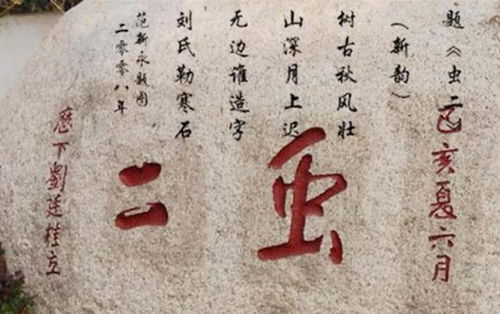 题《虫二
（新韵）
树古秋风壮
山深月上迟
无边谁造字
刘氏勒寒石
范新永题图
二零零八年
己亥夏六月
䖝二
歷下劉廷桂立